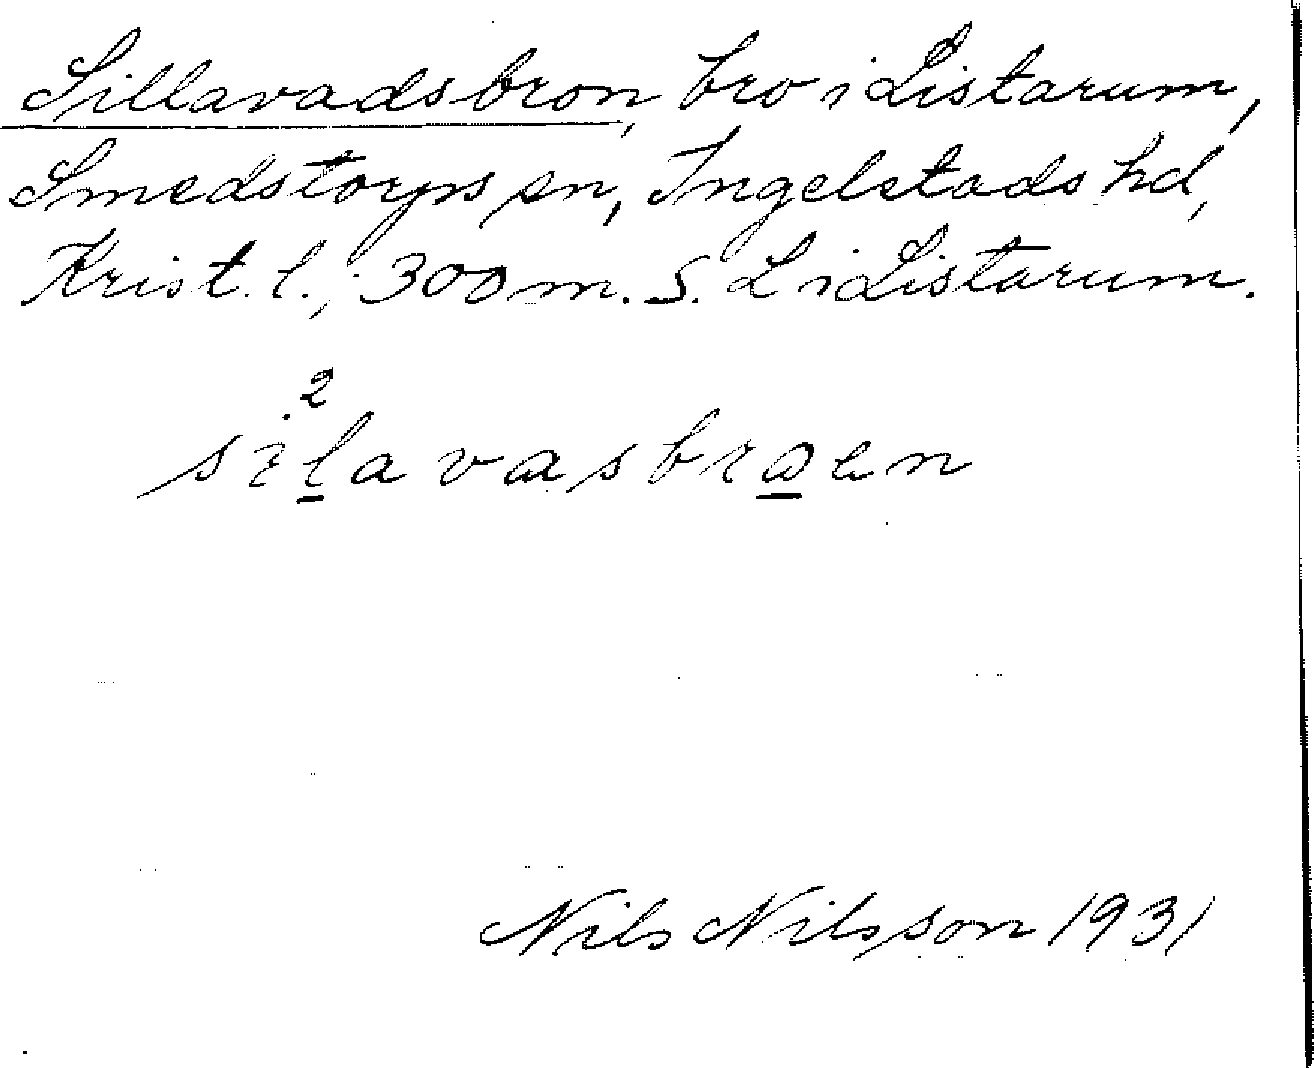 Sillavadsbron, bro i Listarum,
Smedstorps sn, Ingelstads hd,
Krist. l.; 300 m. S. L i Listarum.
2
silavasbroen
Nils Nilsson 1931